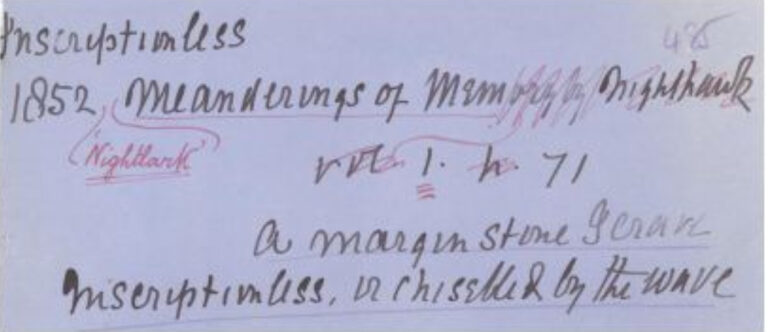 Inscriptionless
1852, Meanderings of Memory by Nighthawk
'Nightlark'
vol. 1. p. 71
a margin stone I crave
Inscriptionless, or chiselled by the wave